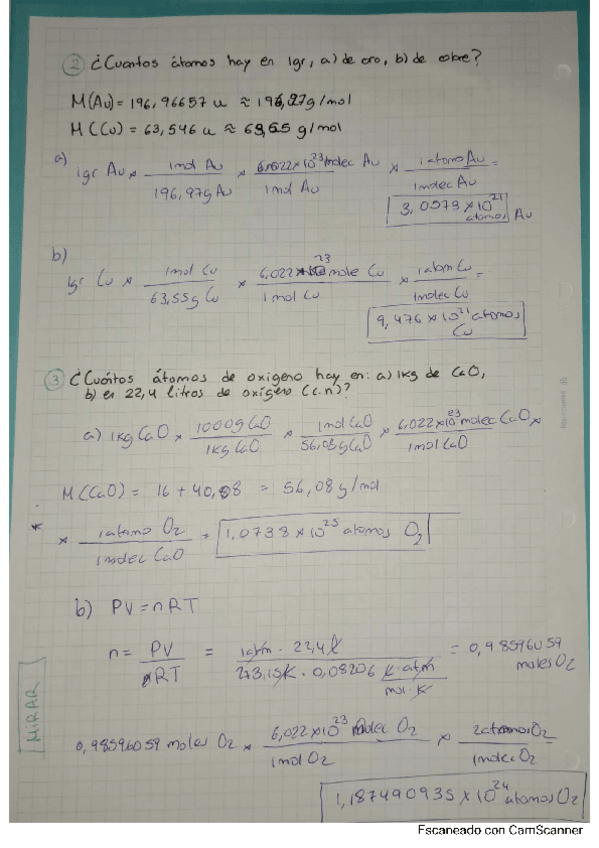 2 ¿Cuantos átomos hay en 1gr, a) de oro, b) de cobre?
M(Au) = 196,96657 u ≈ 196,97g/mol
M(Cu) = 63,546 u ≈ 63,55 g/mol
a) 1gr Au × 1mol Au / 196,97g Au × 6,022×10^23 molec Au / 1mol Au × 1 atomo Au / 1molec Au =
3,0573 × 10^21 atomos Au
b) 1gr Cu × 1mol Cu / 63,55g Cu × 6,022×10^23 molec Cu / 1 mol Cu × 1 atom Cu / 1molec Cu =
9,476 × 10^21 atomos Cu
3 ¿Cuántos átomos de oxigeno hay en: a) 1kg de CaO,
b) en 22,4 litros de oxígeno (c.n)?
a) 1kg CaO × 1000g CaO / 1kg CaO × 1mol CaO / 56,08g CaO × 6,022×10^23 molec CaO / 1mol CaO ×
M(CaO) = 16 + 40,08 = 56,08 g/mol
* × 1 atomo O2 / 1molec CaO = 1,0738 × 10^25 atomos O2
b) PV = nRT
n = PV / RT = 1atm · 22,4 l / 273,15K · 0,08206 l·atm / mol·K = 0,98596059 moles O2
MIRAR
0,98596059 moles O2 × 6,022×10^23 molec O2 / 1mol O2 × 2 atomos O2 / 1molec O2
1,187490935 × 10^24 atomos O2
Escaneado con CamScanner